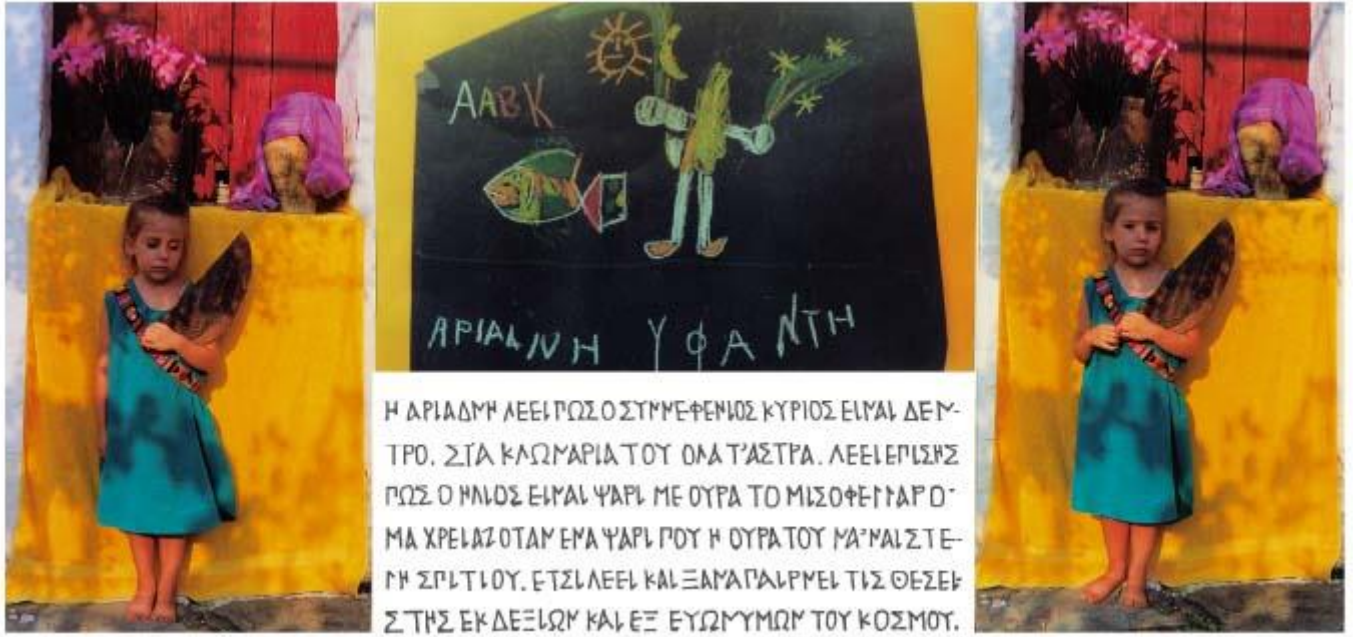 ΑΑΒΚ
ΑΡΙΑΔΝΗ ΥΦΑΝΤΗ
Η ΑΡΙΑΔΝΗ ΛΕΕΙ ΠΩΣ Ο ΣΥΝΝΕΦΕΝΙΟΣ ΚΥΡΙΟΣ ΕΙΝΑΙ ΔΕΝ-
ΤΡΟ. ΣΤΑ ΚΛΩΝΑΡΙΑ ΤΟΥ ΟΛΑ Τ'ΑΣΤΡΑ. ΛΕΕΙ ΕΠΙΣΗΣ
ΠΩΣ Ο ΗΛΙΟΣ ΕΙΝΑΙ ΨΑΡΙ ΜΕ ΟΥΡΑ ΤΟ ΜΙΣΟΦΕΓΓΑΡΟ·
ΜΑ ΧΡΕΙΑΖΟΤΑΝ ΕΝΑ ΨΑΡΙ ΠΟΥ Η ΟΥΡΑ ΤΟΥ ΝΑ'ΝΑΙ ΣΤΕ-
ΓΗ ΣΠΙΤΙΟΥ. ΕΤΣΙ ΛΕΕΙ ΚΑΙ ΞΑΝΑΠΑΙΡΝΕΙ ΤΙΣ ΘΕΣΕΙ
Σ ΤΗΣ ΕΚ ΔΕΞΙΩΝ ΚΑΙ ΕΞ ΕΥΩΝΥΜΩΝ ΤΟΥ ΚΟΣΜΟΥ.